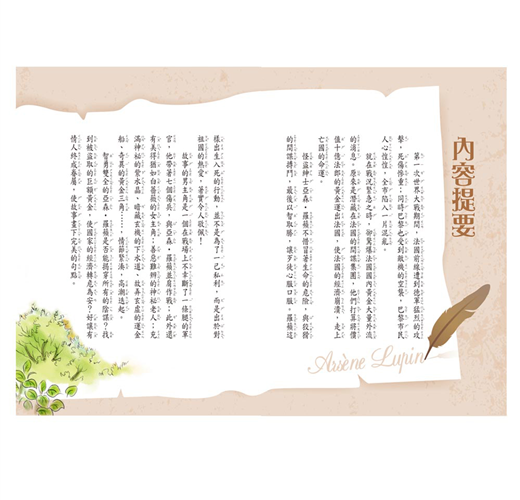 內容提要
第一次世界大戰期間，法國前線遭到德軍猛烈的攻
擊，死傷慘重；同時巴黎也受到敵機的空襲，巴黎市民
人心惶惶，全市陷入一片混亂。
就在戰況緊急之時，卻驚爆法國國內黃金大量外流
的消息。原來是潛藏在法國的間諜集團，他們打算將價
值十億法郎的黃金運出法國，使法國的經濟崩潰，走上
亡國的命運。
怪盜紳士亞森·羅蘋不惜冒著生命的危險，與狡猾
的間諜搏鬥，最後以智取勝，讓歹徒心服口服。羅蘋這
樣出生入死的行動，並不是為了一己私利，而是出於對
祖國的熱愛，著實令人敬佩！
故事的男主角是一個在戰場上不幸斷了一條腿的軍
官，他帶著七個傷兵，與亞森·羅蘋並肩作戰；此外還
有美得猶如白薔薇的女主角；善惡難辨的神祕老人；充
滿神祕的紫水晶、暗藏玄機的下水道、故弄玄虛的運金
船、奇異的黃金三角……，情節緊湊，高潮迭起。
智勇雙全的亞森·羅蘋是否能揭穿所有的陰謀？找
到被盜取的巨額黃金，使國家的經濟轉危為安？好讓有
情人終成眷屬，使故事畫下完美的句點。
Arsène Lupin